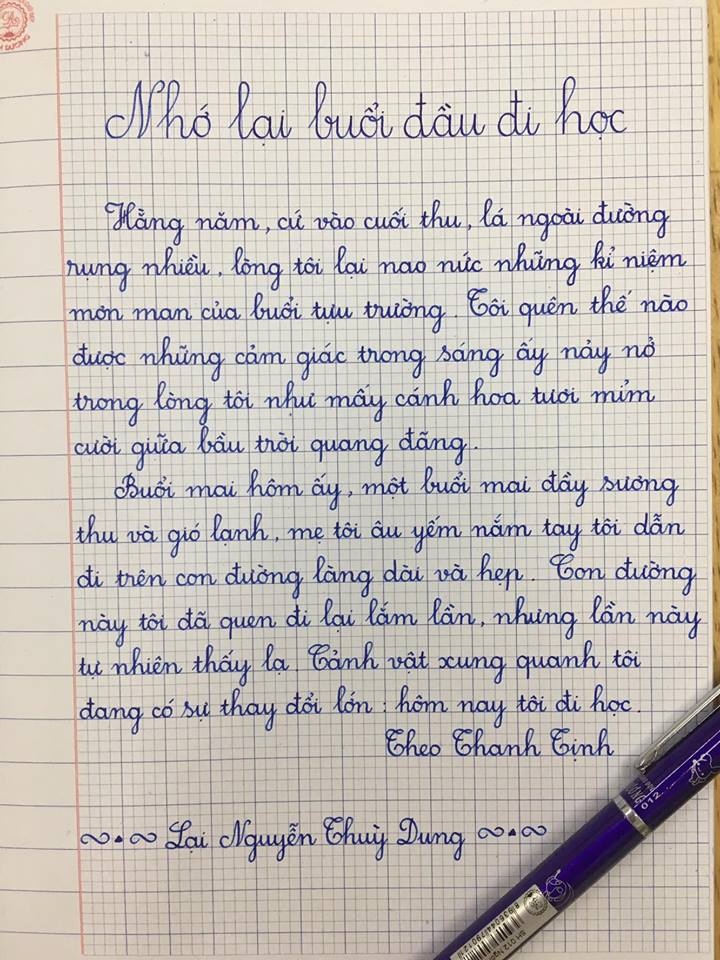 Nhớ lại buổi đầu đi học
Hằng năm, cứ vào cuối thu, lá ngoài đường
rụng nhiều, lòng tôi lại nao nức những kỉ niệm
mơn man của buổi tựu trường. Tôi quên thế nào
được những cảm giác trong sáng ấy nảy nở
trong lòng tôi như mấy cánh hoa tươi mỉm
cười giữa bầu trời quang đãng.
Buổi mai hôm ấy, một buổi mai đầy sương
thu và gió lạnh, mẹ tôi âu yếm nắm tay tôi dẫn
đi trên con đường làng dài và hẹp. Con đường
này tôi đã quen đi lại lắm lần, nhưng lần này
tự nhiên thấy lạ. Cảnh vật xung quanh tôi
đang có sự thay đổi lớn : hôm nay tôi đi học.
Theo Thanh Tịnh
∞•∞ Lại Nguyễn Thuỳ Dung ∞•∞
012